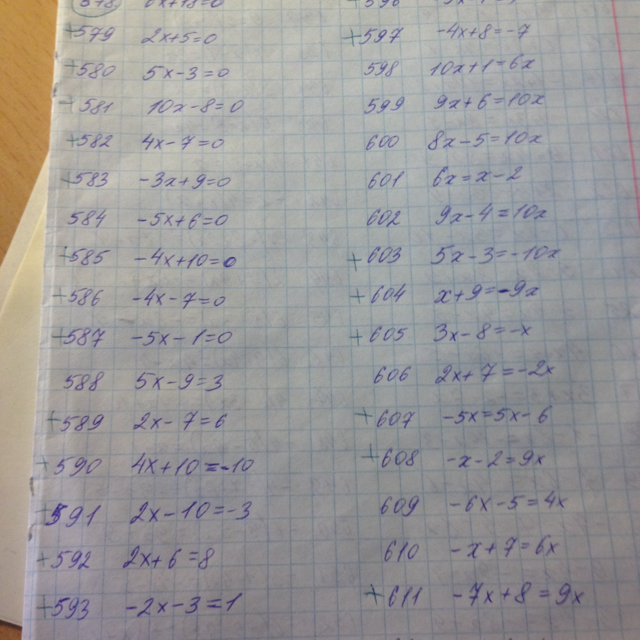 578 6x+18=0
+579 2x+5=0
+580 5x-3=0
+581 10x-8=0
+582 4x-7=0
+583 -3x+9=0
584 -5x+6=0
+585 -4x+10=0
+586 -4x-7=0
+587 -5x-1=0
588 5x-9=3
+589 2x-7=6
+590 4x+10=-10
591 2x-10=-3
+592 2x+6=8
+593 -2x-3=1
+596
+597 -4x+8=-7
598 10x+1=6x
599 9x+6=10x
600 8x-5=10x
601 6x=x-2
602 9x-4=10x
+603 5x-3=-10x
+604 x+9=-9x
+605 3x-8=-x
606 2x+7=-2x
+607 -5x=5x-6
+608 -x-2=9x
609 -6x-5=4x
610 -x+7=6x
+611 -7x+8=9x